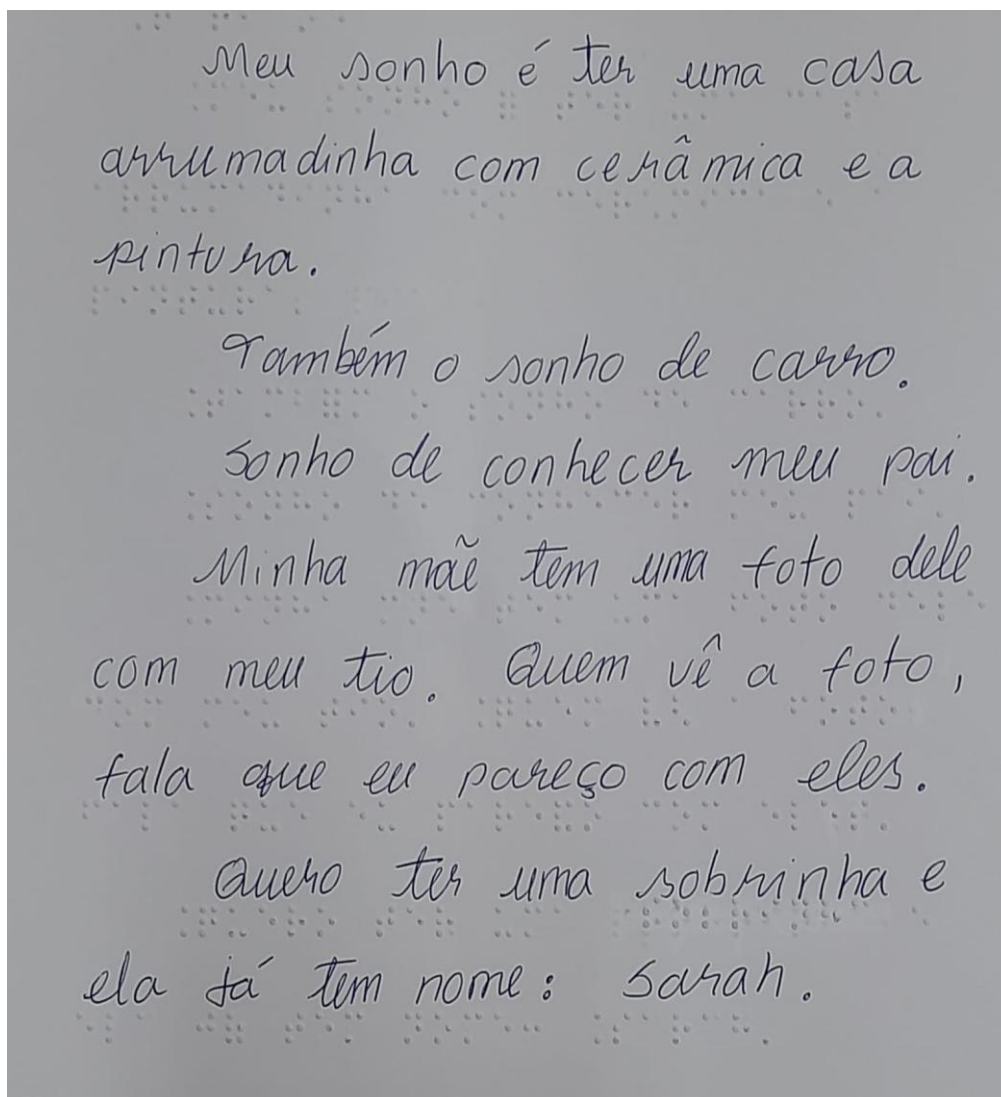 Meu sonho é ter uma casa
arrumadinha com cerâmica e a
pintura.
Também o sonho de carro.
Sonho de conhecer meu pai.
Minha mãe tem uma foto dele
com meu tio. Quem vê a foto,
fala que eu pareço com eles.
Quero ter uma sobrinha e
ela já tem nome: Sarah.